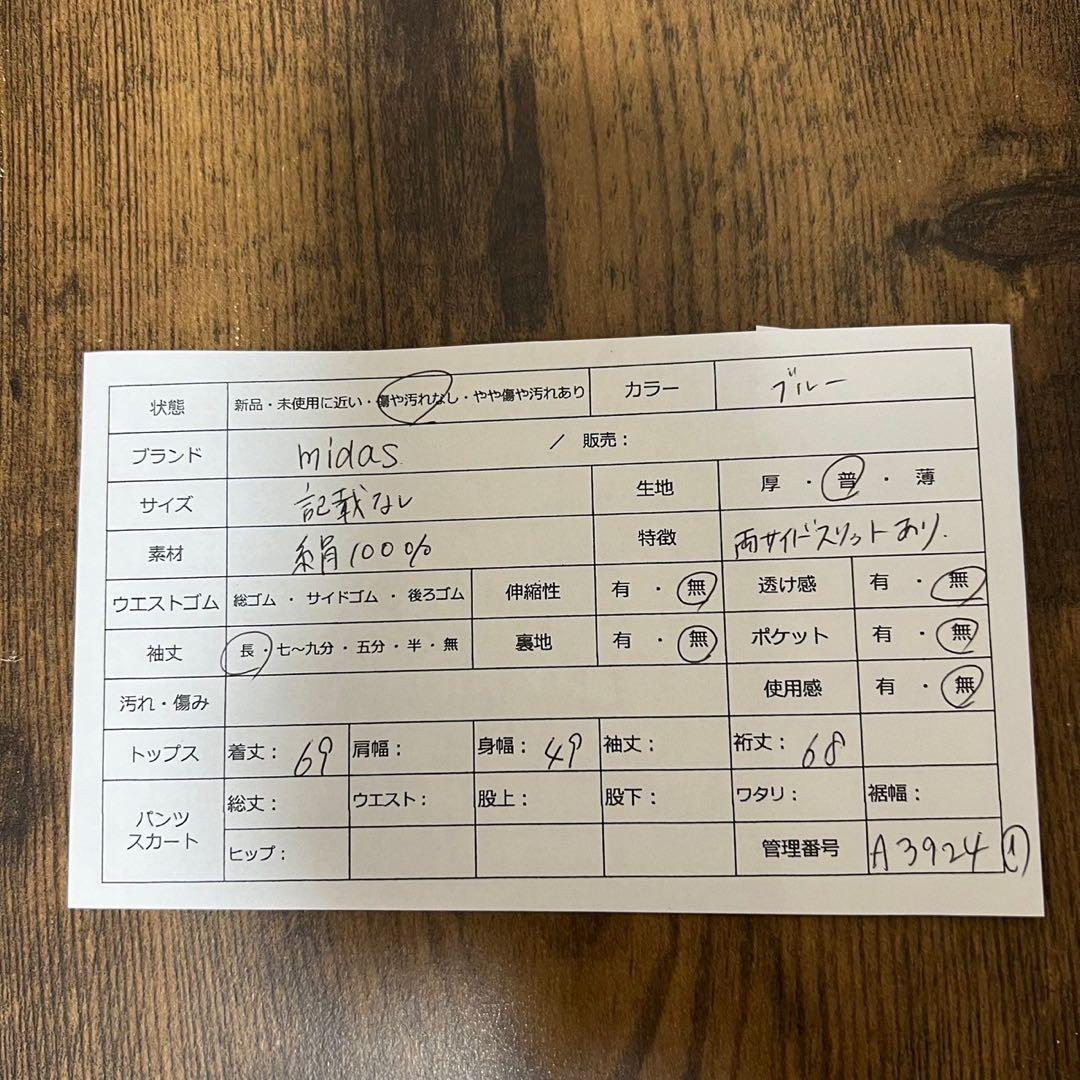 状態 新品・未使用に近い・傷や汚れなし・やや傷や汚れあり カラー ブルー
ブランド midas / 販売：
サイズ 記載なし 生地 厚・普・薄
素材 絹100% 特徴 両サイドスリットあり.
ウエストゴム 総ゴム・サイドゴム・後ろゴム 伸縮性 有・無 透け感 有・無
袖丈 長・七〜九分・五分・半・無 裏地 有・無 ポケット 有・無
汚れ・傷み 使用感 有・無
トップス 着丈：69 肩幅： 身幅：49 袖丈： 裄丈：68
パンツ スカート 総丈： ウエスト： 股上： 股下： ワタリ： 裾幅：
ヒップ： 管理番号 A3924 ①